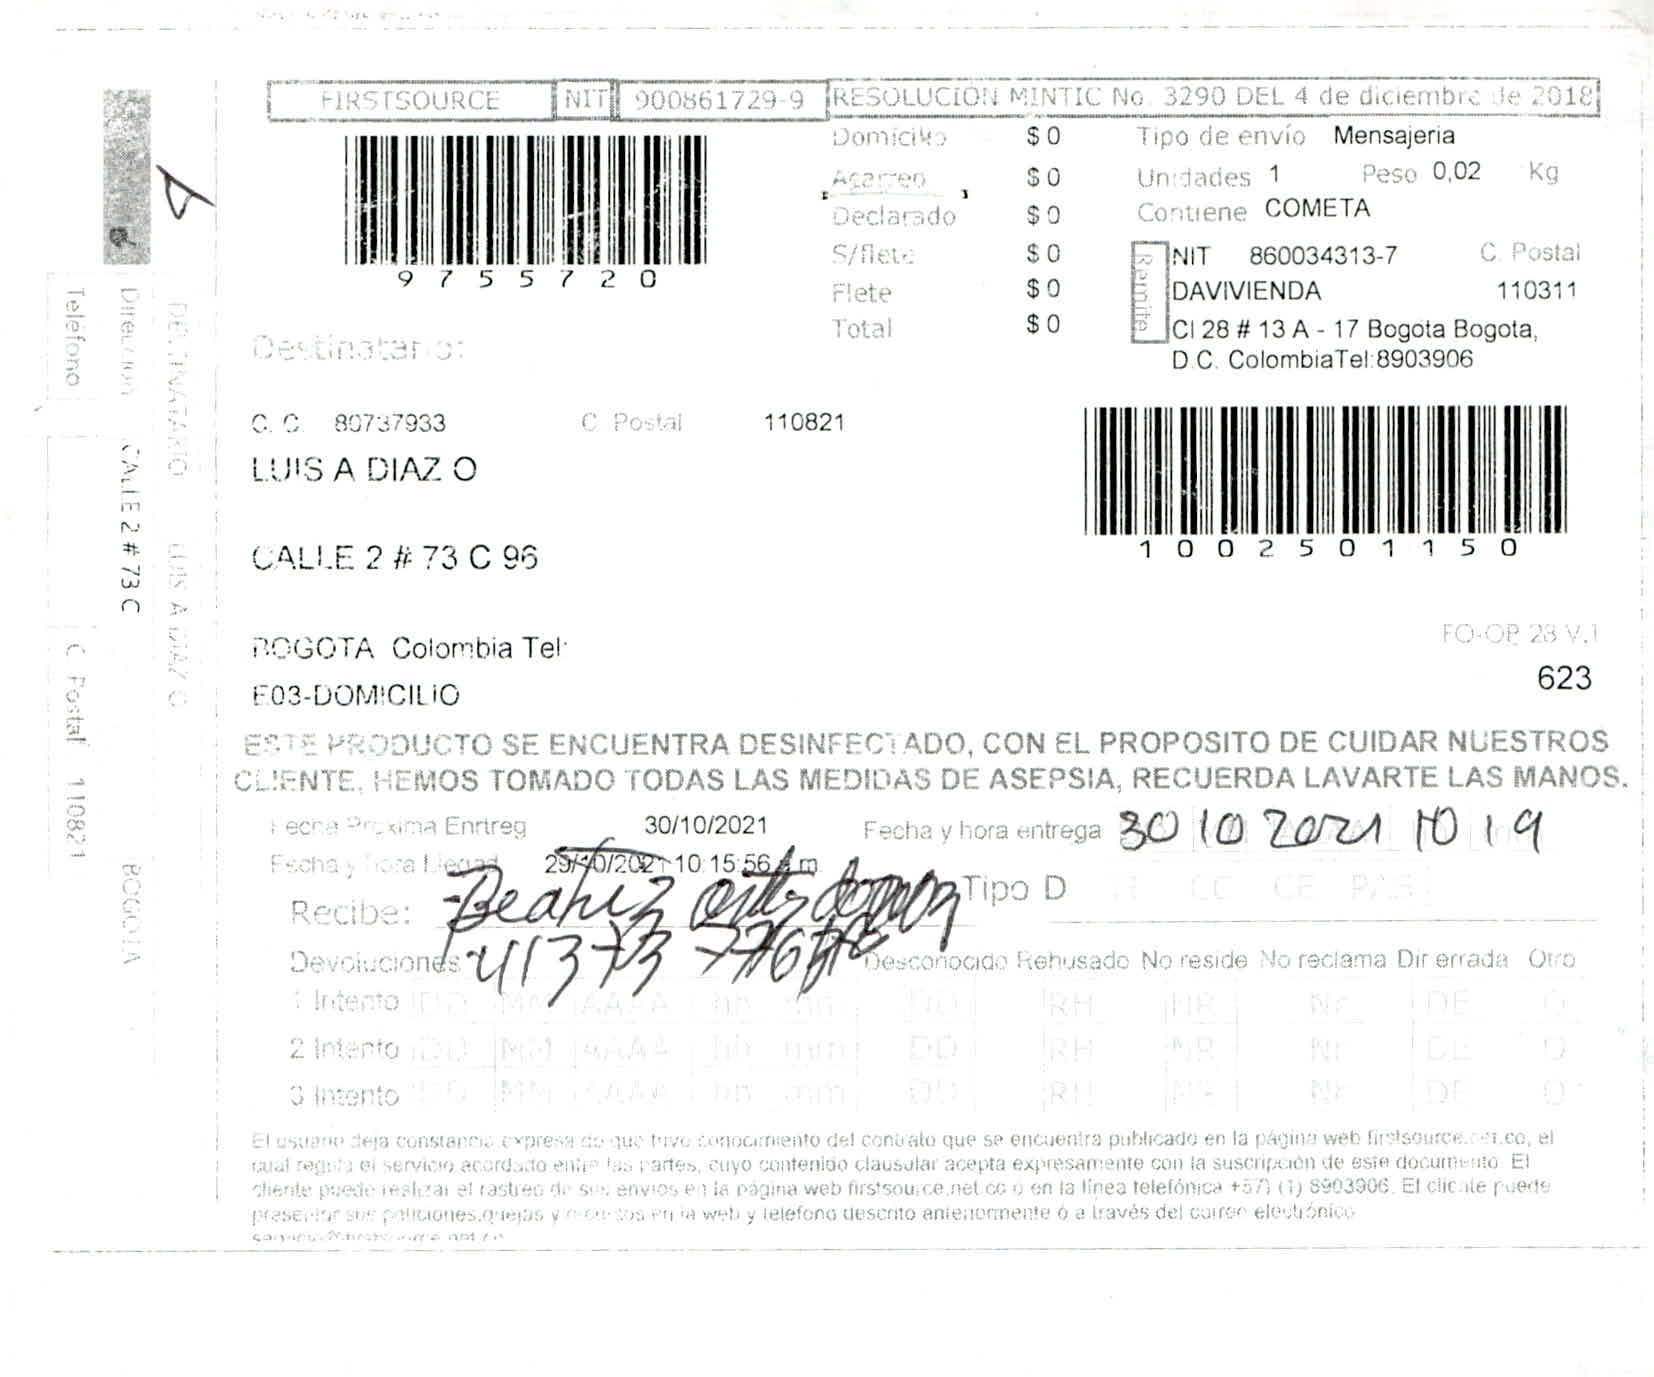 FIRSTSOURCE NIT 900861729-9 RESOLUCION MINTIC No. 3290 DEL 4 de diciembre de 2018
9755720
Domicilio $ 0
Acarreo $ 0
Declarado $ 0
S/flete $ 0
Flete $ 0
Total $ 0
Tipo de envío Mensajeria
Unidades 1 Peso 0,02 Kg
Contiene COMETA
Remite
NIT 860034313-7 C. Postal
DAVIVIENDA 110311
Cl 28 # 13 A - 17 Bogota Bogota,
D.C. ColombiaTel:8903906
1002501150
Destinatario:
C. C. 80737933 C Postal 110821
LUIS A DIAZ O
CALLE 2 # 73 C 96
BOGOTA Colombia Tel:
E03-DOMICILIO
FO-OP 28 V.1
623
ESTE PRODUCTO SE ENCUENTRA DESINFECTADO, CON EL PROPOSITO DE CUIDAR NUESTROS
CLIENTE, HEMOS TOMADO TODAS LAS MEDIDAS DE ASEPSIA, RECUERDA LAVARTE LAS MANOS.
Fecha Proxima Enrtreg 30/10/2021 Fecha y hora entrega 30 10 2021 10 19
Fecha y hora Llegad 29/10/2021 10:15:56 a.m.
Recibe: Beatriz Tipo D CC CE
41373
Devoluciones Desconocido Rehusado No reside No reclama Dir errada Otro
1 Intento DD MM AAAA hh mm DD RH NR Nr DE O
2 Intento DD MM AAAA hh mm DD RH NR Nr DE O
3 Intento DD MM AAAA hh mm DD RH NR Nr DE O
El usuario deja constancia expresa de que tuvo conocimiento del contrato que se encuentra publicado en la página web firstsource.net.co, el
cual regula el servicio acordado entre las partes, cuyo contenido clausular acepta expresamente con la suscripción de este documento. El
cliente puede realizar el rastreo de sus envios en la página web firstsource.net.co o en la línea telefónica +57) (1) 8903906. El cliente puede
presentar sus peticiones,quejas y recursos en la web y telefono descrito anteriormente ó a través del correo electrónico
DESTINATARIO LUIS A DIAZ O
Direccion CALLE 2 # 73 C BOGOTA
Teléfono C. Postal 110821